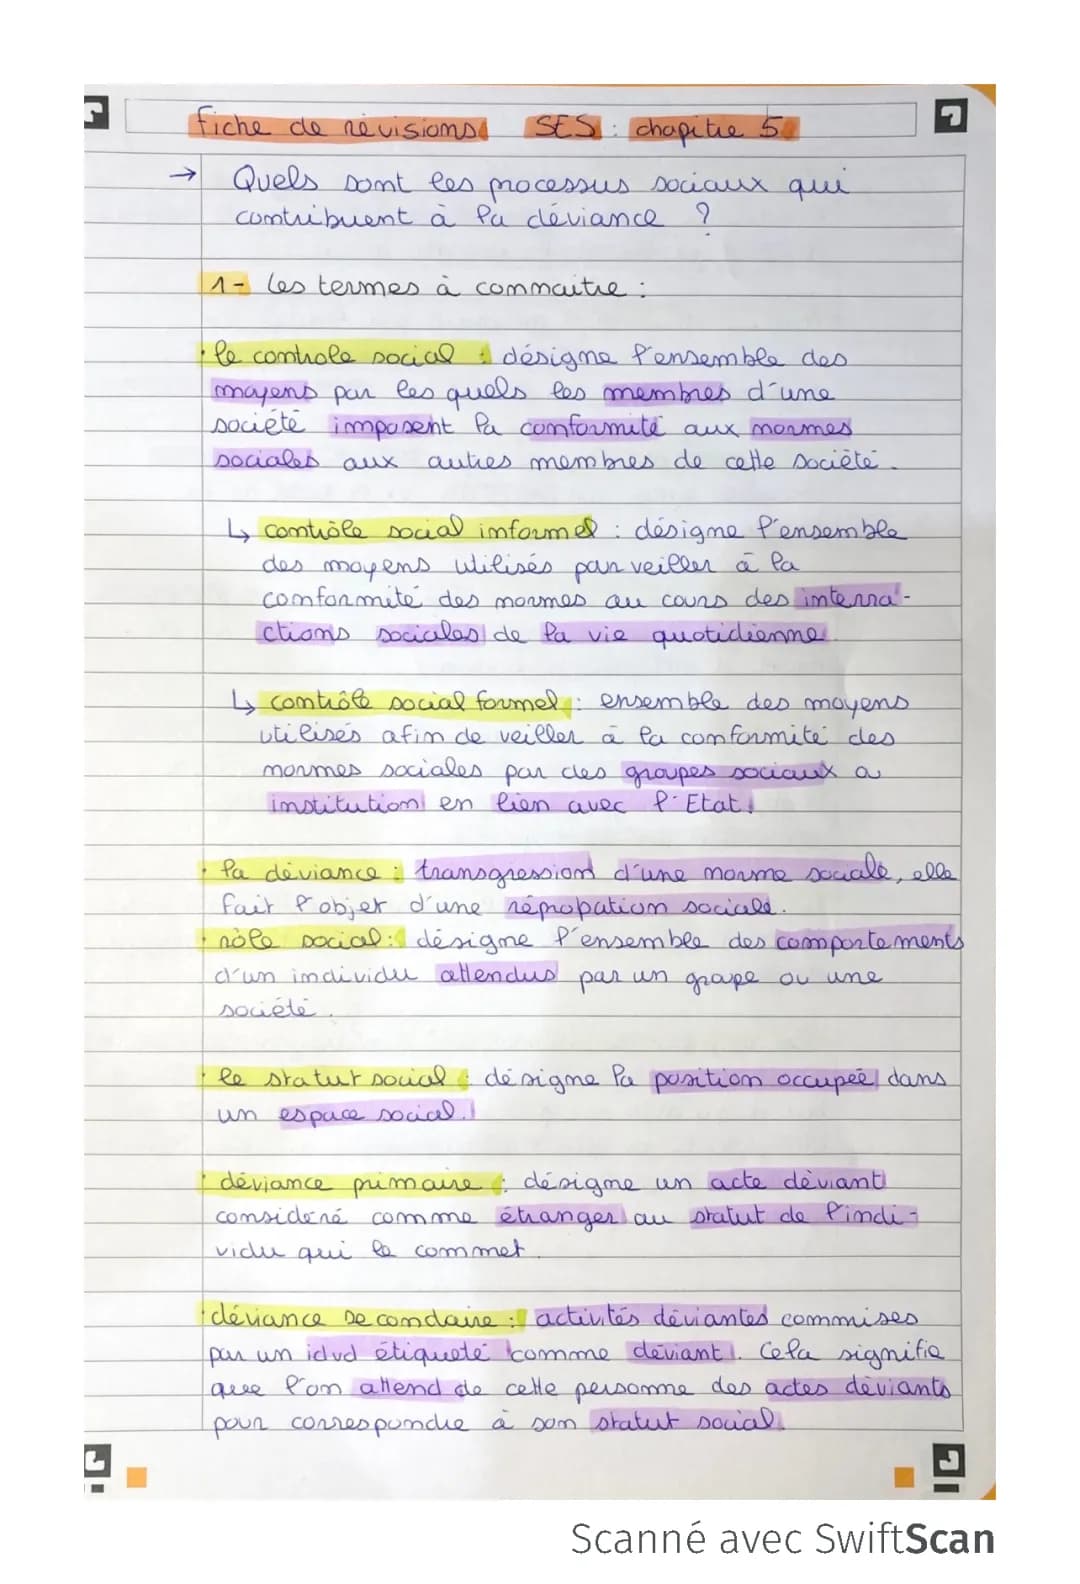 fiche de révisions SES : chapitre 5
→ Quels sont les processus sociaux qui
contribuent à la déviance ?
1- les termes à connaitre :
· le controle social : désigne l'ensemble des
moyens par les quels les membres d'une
société imposent la conformité aux normes
sociales aux autres membres de cette société.
↳ contrôle social informel : désigne l'ensemble
des moyens utilisés par veiller à la
conformité des normes au cours des interra-
ctions sociales de la vie quotidienne
↳ contrôle social formel : ensemble des moyens
utilisés afin de veiller à la conformité des
normes sociales par des groupes sociaux a
institution en lien avec l'Etat.
· la déviance : transgression d'une norme sociale, elle
fait l'objet d'une réprobation sociale.
· rôle social : désigne l'ensemble des comportements
d'un individu attendus par un groupe ou une
société.
· le statut social : désigne la position occupée dans
un espace social.
· déviance primaire : désigne un acte déviant
considéré comme étranger au statut de l'indi-
vidu qui le commet.
· déviance secondaire : activités déviantes commises
par un idvd étiqueté comme déviant. Cela signifie
que l'on attend de cette personne des actes déviants
pour correspondre à son statut social.
Scanné avec SwiftScan